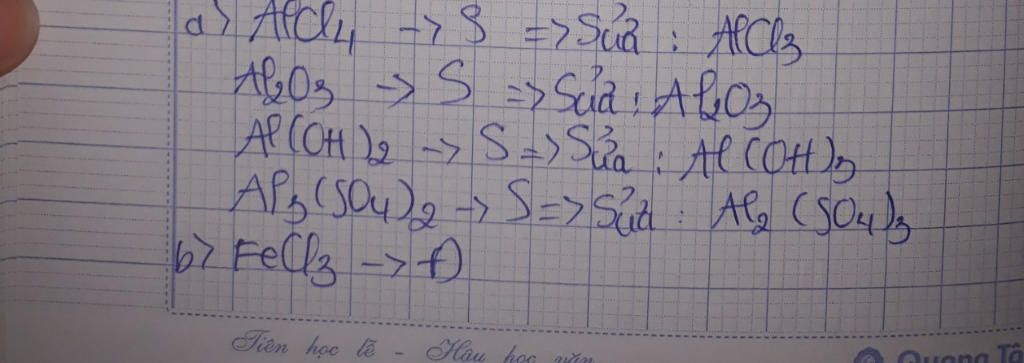 a> AlCl4 → S => Sửa : AlCl3
Al2O3 → S => Sửa : Al2O3
Al(OH)2 → S => Sửa : Al(OH)3
Al3(SO4)2 → S => Sửa : Al2(SO4)3
b> FeCl3 → Đ
Tiên học lễ - Hậu học văn